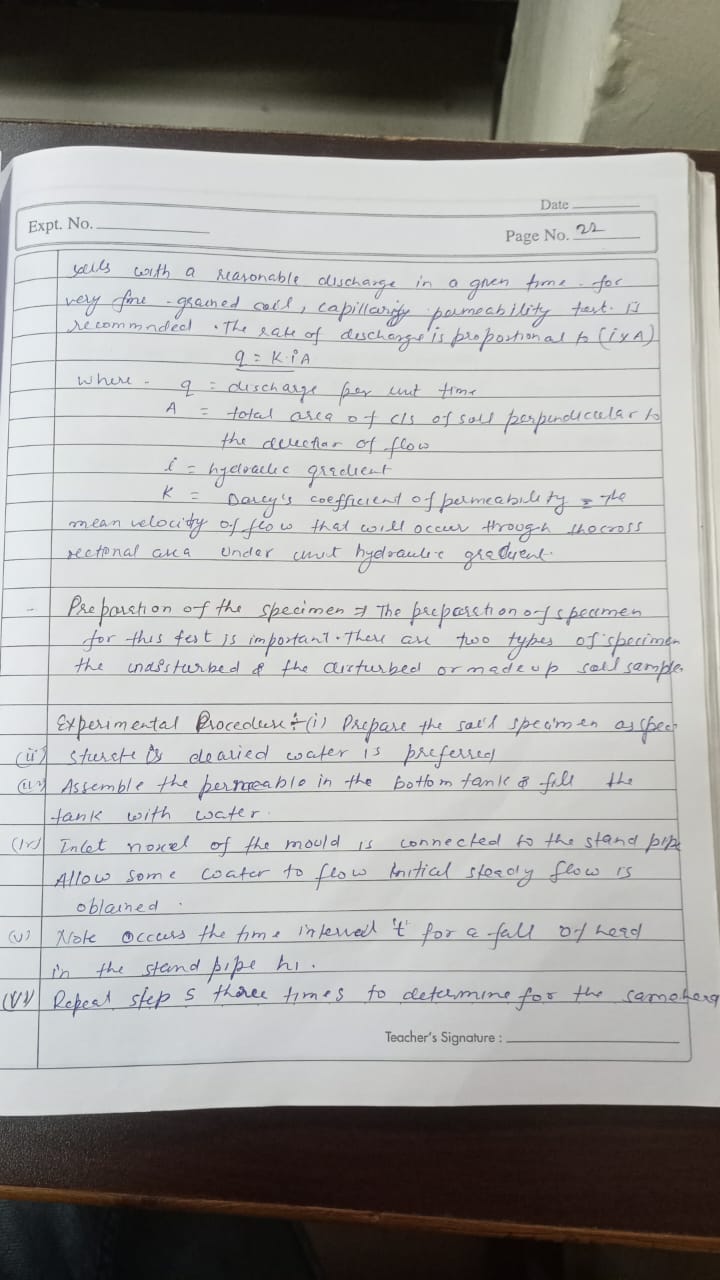 Date
Expt. No.
Page No. 22
with a reasonable discharge in a given time. for
very fine-grained soil, capillarity permeability test. is
recommnded. The rate of discharge is proportional to (i×A)
q = K·iA
where - q = discharge per unit time
A = total area of c/s of soil perpendicular to
the direction of flow
i = hydraulic gradient
K = Darcy's coefficient of permeability = The
mean velocity of flow that will occur through thocross
sectional area under unit hydraulic gradient.
- Preparation of the specimen ⇒ The preparation of specimen
for this test is important. There are two types of specimen
the undisturbed & the disturbed or madeup soil sample
Experimental Procedure ÷ (i) Prepare the soil specimen as spec
(ii) dearied water is preferred
(iii) Assemble the permeable in the bottom tank & fill the
tank with water.
(iv) Inlet nozel of the mould is connected to the stand pipe
Allow some water to flow Initial steady flow is
oblained.
(v) Note occurs the time interval 't' for a fall of head
in the stand pipe h1.
(vi) Repeat step 5 three times to determine for the same
Teacher's Signature :